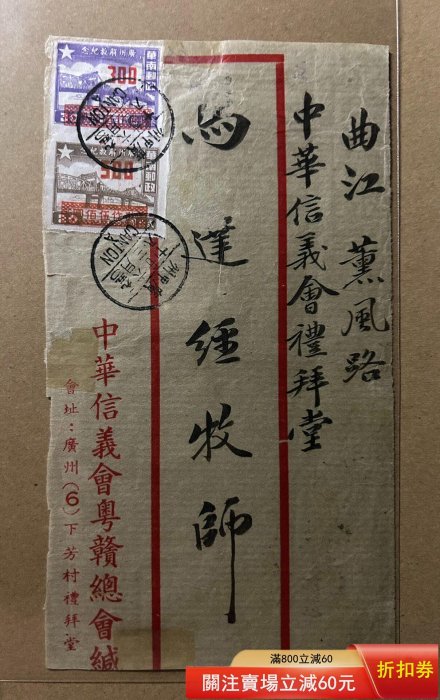 曲江 薰風路
中華信義會禮拜堂
馬達經牧師
中華信義會粵贛總會緘
會址：廣州（6）下芳村禮拜堂
華南郵政
廣州解放紀念
300
300
CANTON
CANTON
滿800立減60
關注賣場立減60元
折扣券